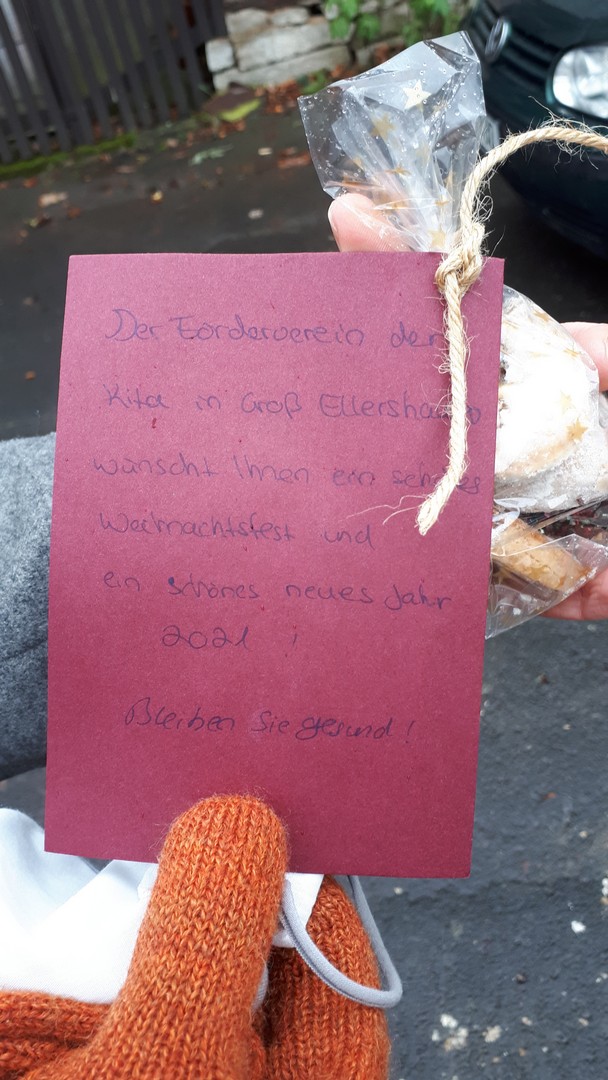 Der Förderverein der
Kita in Groß Ellershausen
wünscht Ihnen ein schönes
Weihnachtsfest und
ein schönes neues Jahr
2021 !
Bleiben Sie gesund!